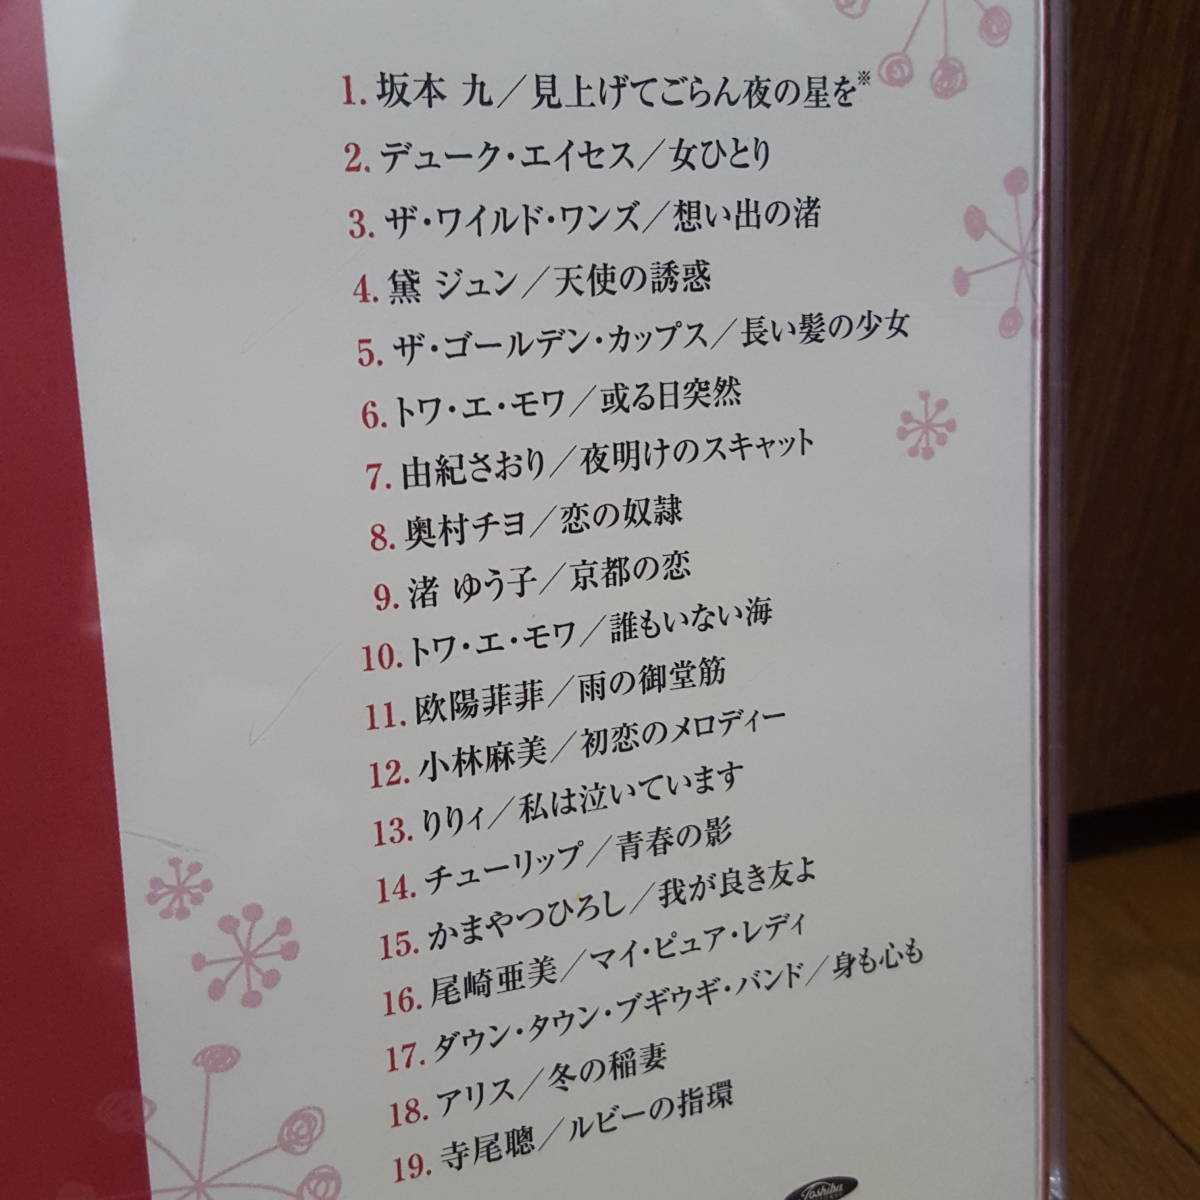 1. 坂本 九／見上げてごらん夜の星を※
2. デューク・エイセス／女ひとり
3. ザ・ワイルド・ワンズ／想い出の渚
4. 黛 ジュン／天使の誘惑
5. ザ・ゴールデン・カップス／長い髪の少女
6. トワ・エ・モワ／或る日突然
7. 由紀さおり／夜明けのスキャット
8. 奥村チヨ／恋の奴隷
9. 渚 ゆう子／京都の恋
10. トワ・エ・モワ／誰もいない海
11. 欧陽菲菲／雨の御堂筋
12. 小林麻美／初恋のメロディー
13. りりィ／私は泣いています
14. チューリップ／青春の影
15. かまやつひろし／我が良き友よ
16. 尾崎亜美／マイ・ピュア・レディ
17. ダウン・タウン・ブギウギ・バンド／身も心も
18. アリス／冬の稲妻
19. 寺尾聰／ルビーの指環
Toshiba